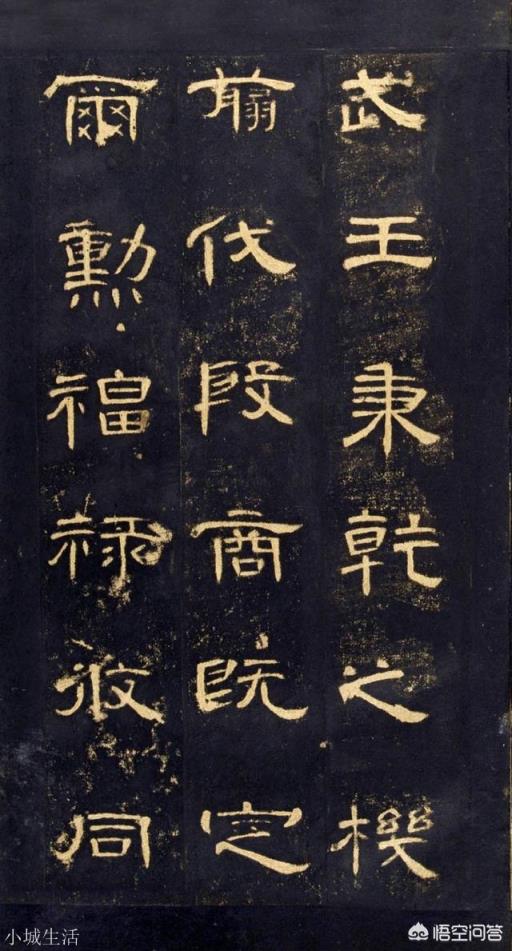 武王秉乾之機
翦伐殷商既定
爾勲福祿攸同
小城生活
悟空问答